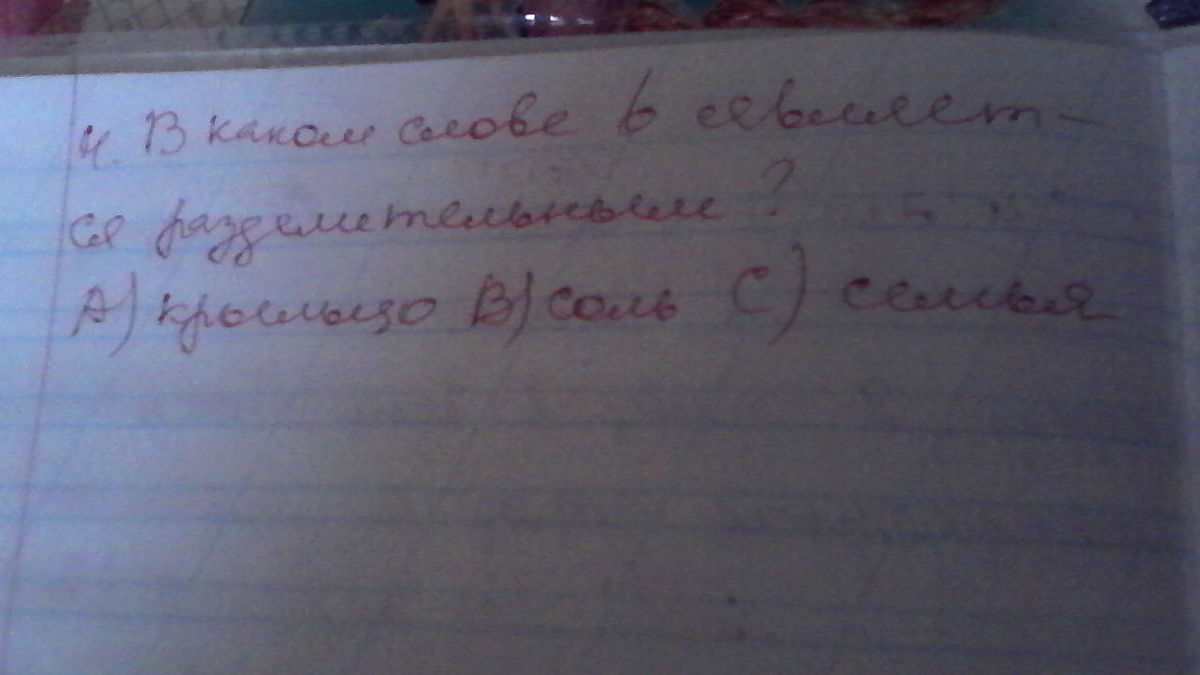 4. В каком слове ь является-
ся разделительным?
А) крыльцо В) соль С) семья